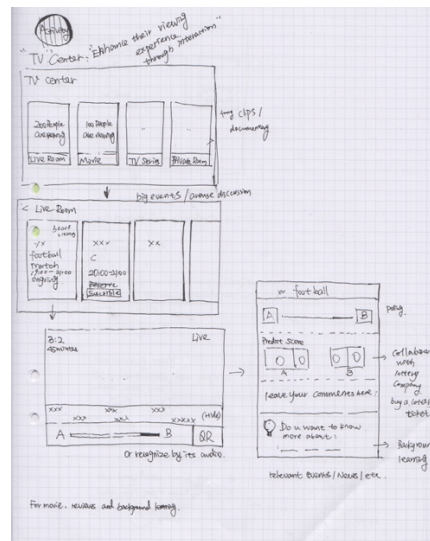 Activity
"TV" Center: "Enhance their viewing
experience
through interaction"
TV center
200 People
are viewing
100 People
are viewing
Live Room
Movie
TV Series
Private Room
clips /
documentary
big events / arouse discussion
< Live Room
football
match
ongoing
xxx
xx
C
20:00-21:00
Reserve
Subscribe
3:2
45 minutes
Live
xxx
xxx
xxx
xxx
xxxxx
A
B
QR
Or recognize by its audio.
football
A
B
Predict Score
0
0
0
0
A
B
Collaborate
with
lottery
company
buy a
ticket
leave your comments here:
Do u want to know
more about:
Background
learning
relevant events / News / etc.
For movie, reviews and background learning.